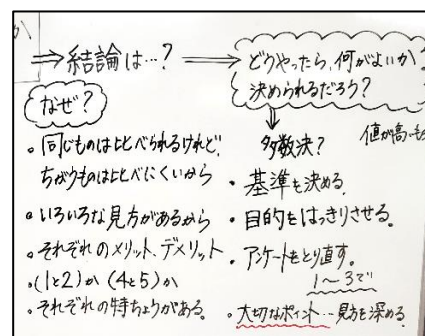 ⇒結論は…? ⇒
どうやったら、何がよいか
決められるだろう?
なぜ?
・同じものは比べられるけれど、
ちがうものは比べにくいから
・いろいろな見方があるから
・それぞれのメリット、デメリット
・(1と2)か(4と5)か
・それぞれの特ちょうがある。
多数決?
値が高い
・基準を決める。
・目的をはっきりさせる。
・アンケートをとり直す。
1〜3で
・大切なポイント…見方を深める